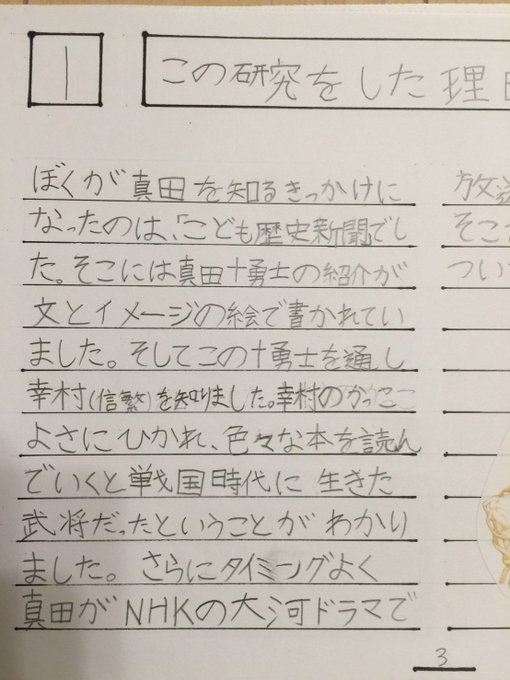 1
この研究をした理
ぼくが真田を知るきっかけに
なったのは、「こども歴史新聞でし
た。そこには真田十勇士の紹介が
文とイメージの絵で書かれてい
ました。そしてこの十勇士を通し
幸村(信繁)を知りました。幸村のかっこ
よさにひかれ、色々な本を読ん
でいくと戦国時代に生きた
武将だったということがわかり
ました。さらにタイミングよく
真田がNHKの大河ドラマで
放送
そこ
つい
3